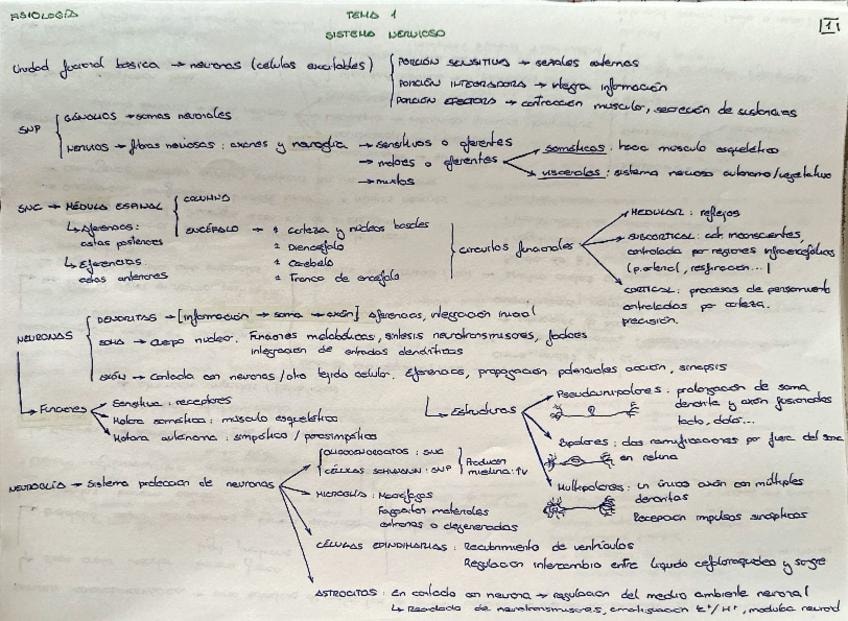 FISIOLOGÍA TEMA 1 1
SISTEMA NERVIOSO
Unidad funcional básica → neuronas (células excitables) PORCIÓN SENSITIVA → señales externas
PORCIÓN INTEGRADORA → integra información
PORCIÓN EFECTORA → contracción muscular, secreción de sustancias
SNP GÁNGLIOS → somas neuronales
NERVIOS → fibras nerviosas: axones y neuroglía → sensitivos o aferentes
→ motores o eferentes somáticos: hacia músculo esquelético
→ mixtos viscerales: sistema nervioso autónomo/vegetativo
SNC → MÉDULA ESPINAL COLUMNA
↳ Aferencias: astas posteriores
↳ Eferencias: astas anteriores
ENCÉFALO → 1 corteza y núcleos basales
2 Diencéfalo
Cerebelo
Tronco de encéfalo
circuitos funcionales
MEDULAR: reflejos
SUBCORTICAL: inconscientes,
controlada por regiones infraencefálicas
(p.arterial, respiración...)
CORTICAL: procesos de pensamiento
controlados por corteza.
precisión.
NEURONAS DENDRITAS → [información → soma → axón] Aferencias, integración inicial
SOMA → cuerpo nuclear. Funciones metabólicas, síntesis neurotransmisores,
integración de entradas dendríticas
AXÓN → Contacta con neuronas / otro tejido celular. Eferencias, propagación potenciales acción, sinapsis
→ Funciones Sensitiva: receptores
Motora somática: músculo esquelético
Motora autónoma: simpático / parasimpático
↳ Estructuras Pseudounipolares: prolongación de soma
dendrita y axón fusionados
tacto, dolor...
Bipolares: dos ramificaciones por fuera del soma
en retina
Multipolares: un único axón con múltiples
dendritas
Recepción impulsos sinápticos
NEUROGLÍA → Sistema protección de neuronas
OLIGODENDROCITOS: SNC
CÉLULAS SCHWANN: SNP Producen mielina: ↑v
MICROGLÍA: Macrófagos
Fagocitan materiales
extraños o degenerados
CÉLULAS EPINDIMARIAS: Recubrimiento de ventrículos
Regulación intercambio entre líquido cefalorraquídeo y sangre
ASTROCITOS: en contacto con neurona → regulación del medio ambiente neuronal
↳ Reciclado de neurotransmisores, amortiguación K⁺/H⁺,